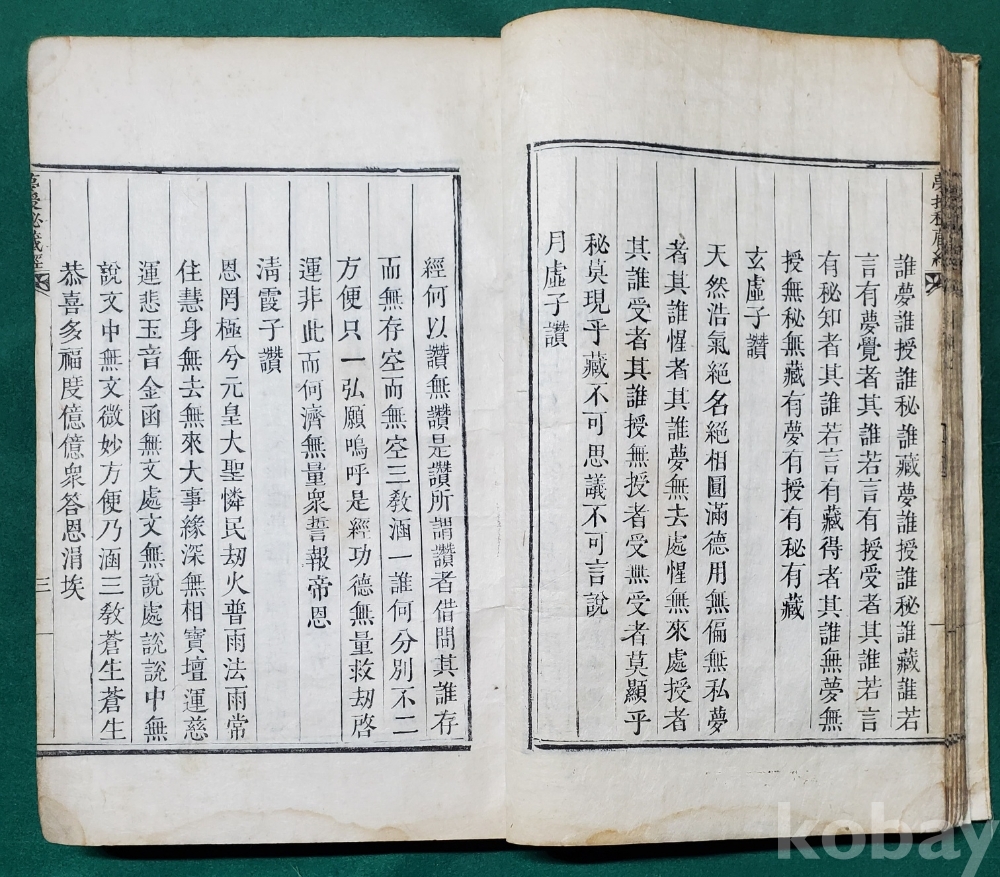 誰夢誰授誰秘誰藏夢誰授誰秘誰藏誰若
言有夢覺者其誰若言有授受者其誰若言
有秘知者其誰若言有藏得者其誰無夢無
授無秘無藏有夢有授有秘有藏
玄虛子讚
天然浩氣絕名絕相圓滿德用無偏無私夢
者其誰惺者其誰夢無去處惺無來處授者
其誰受者其誰授無授者受無受者莫顯乎
秘莫現乎藏不可思議不可言說
月虛子讚
經何以讚無讚是讚所謂讚者借問其誰存
而無存空而無空三敎涵一誰何分別不二
方便只一弘願嗚呼是經功德無量救劫啓
運非此而何濟無量衆誓報帝恩
淸霞子讚
恩罔極兮元皇大聖憐民劫火普雨法雨常
住慧身無去無來大事緣深無相寶壇運慈
運悲玉音金函無文處文無說處說說中無
說文中無文微妙方便乃涵三敎蒼生蒼生
恭喜多福度億億衆答恩涓埃
夢授秘藏經
三
kobay